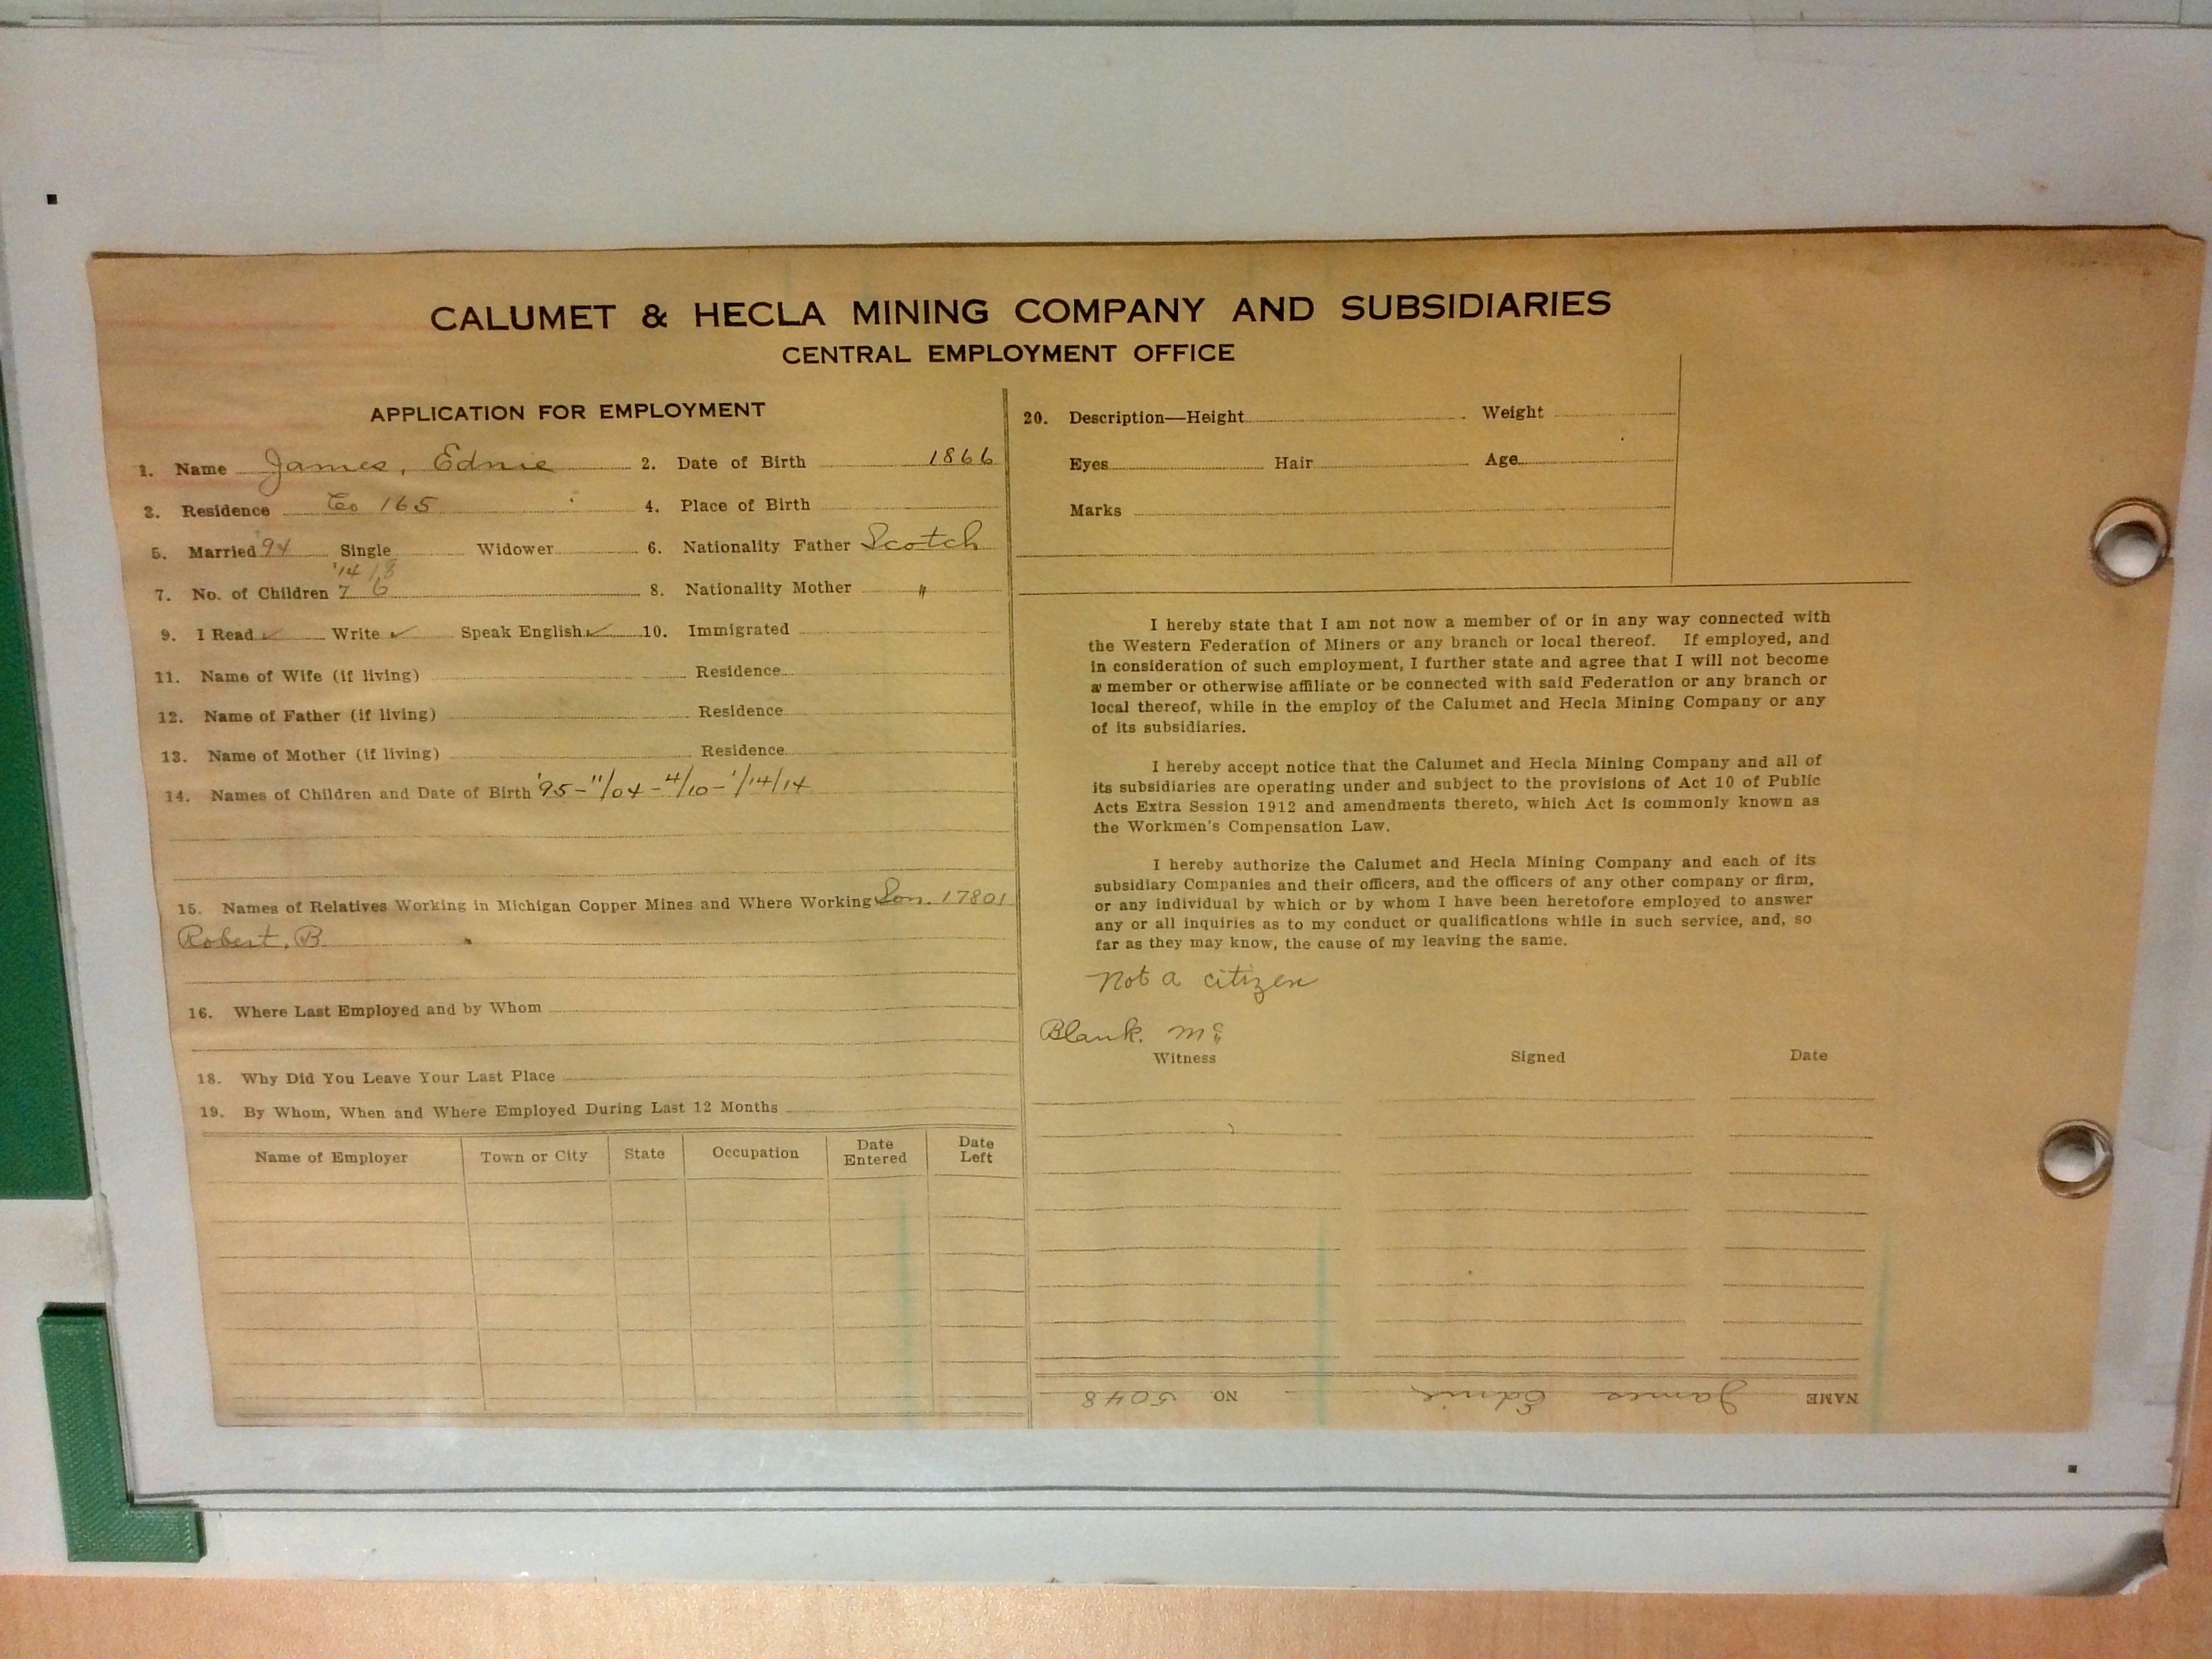 CALUMET & HECLA MINING COMPANY AND SUBSIDIARIES
CENTRAL EMPLOYMENT OFFICE
APPLICATION FOR EMPLOYMENT
1. Name James, Ednie 2. Date of Birth 1866
3. Residence Co 165 4. Place of Birth
5. Married '94 Single Widower 6. Nationality Father Scotch
'14 18
7. No. of Children 7 6 8. Nationality Mother "
9. I Read ✓ Write ✓ Speak English ✓ 10. Immigrated
11. Name of Wife (if living) Residence
12. Name of Father (if living) Residence
13. Name of Mother (if living) Residence
14. Names of Children and Date of Birth '95 - 11/04 - 4/10 - 1/14/14
15. Names of Relatives Working in Michigan Copper Mines and Where Working Son. 17801
Robert, B
16. Where Last Employed and by Whom
18. Why Did You Leave Your Last Place
19. By Whom, When and Where Employed During Last 12 Months
Name of Employer Town or City State Occupation Date Entered Date Left
20. Description—Height Weight
Eyes Hair Age
Marks
I hereby state that I am not now a member of or in any way connected with
the Western Federation of Miners or any branch or local thereof. If employed, and
in consideration of such employment, I further state and agree that I will not become
a member or otherwise affiliate or be connected with said Federation or any branch or
local thereof, while in the employ of the Calumet and Hecla Mining Company or any
of its subsidiaries.
I hereby accept notice that the Calumet and Hecla Mining Company and all of
its subsidiaries are operating under and subject to the provisions of Act 10 of Public
Acts Extra Session 1912 and amendments thereto, which Act is commonly known as
the Workmen's Compensation Law.
I hereby authorize the Calumet and Hecla Mining Company and each of its
subsidiary Companies and their officers, and the officers of any other company or firm,
or any individual by which or by whom I have been heretofore employed to answer
any or all inquiries as to my conduct or qualifications while in such service, and, so
far as they may know, the cause of my leaving the same.
Not a citizen
Blank. Mc
Witness Signed Date
NAME James Ednie NO. 5048